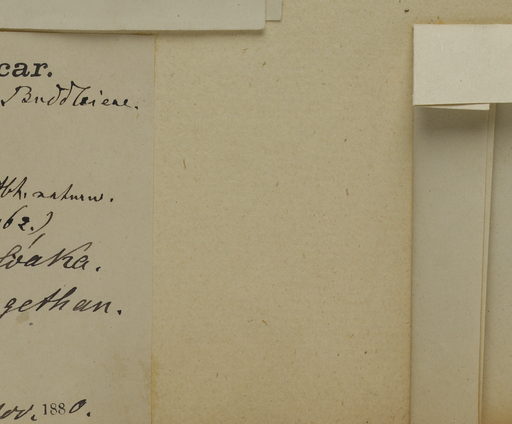 car.
Buddleieae.
Abh. naturw.
62.)
lóaka.
gethan.
nov. 1880.